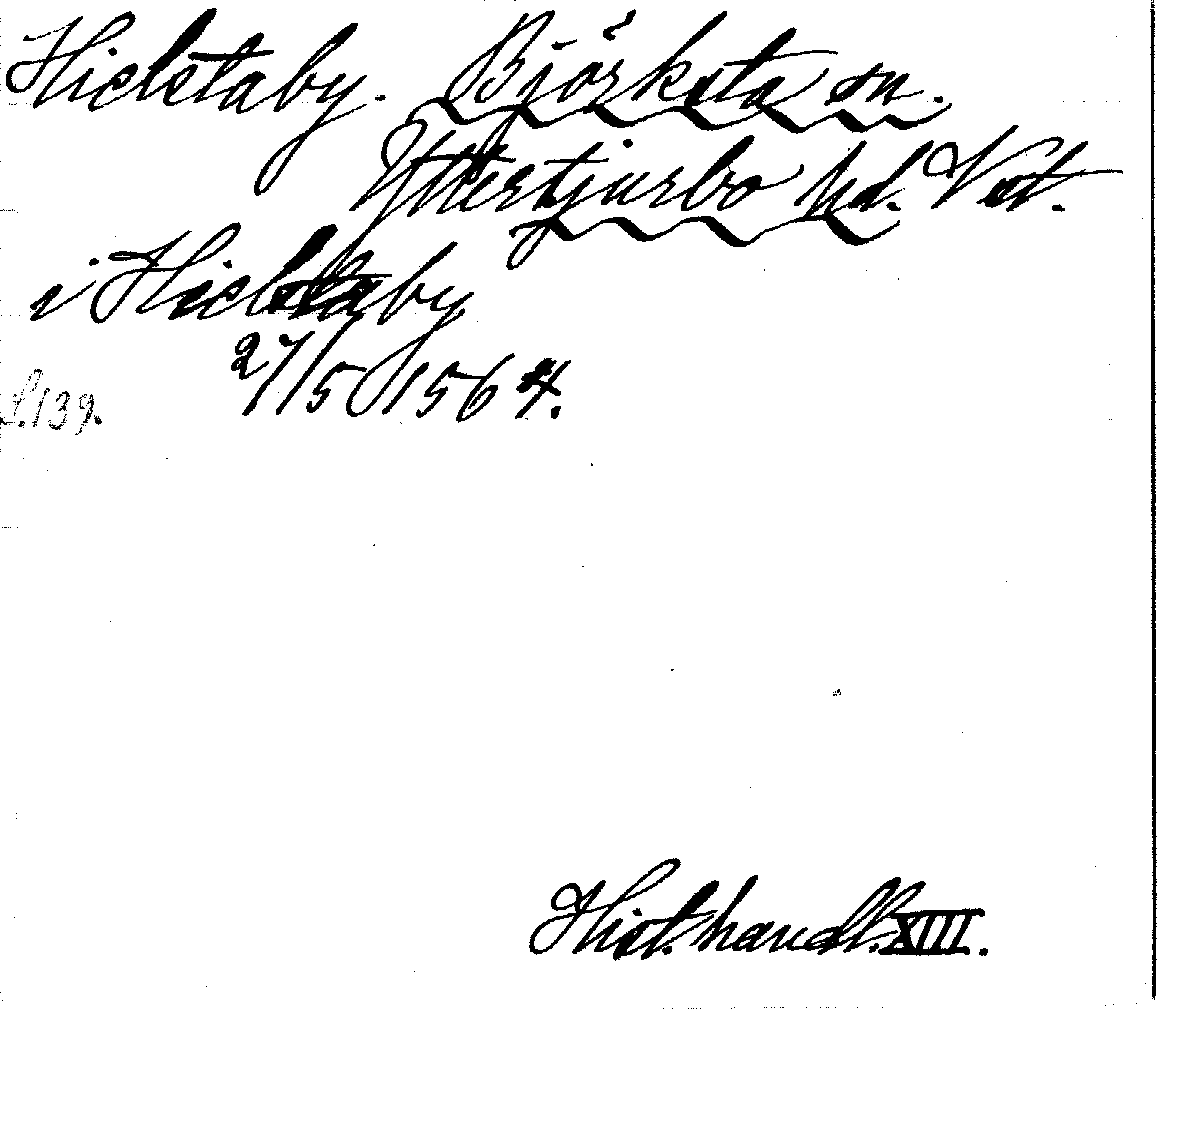 Hielstaby. Björksta sn.
Yttertjurbo hd. Vstm.
i Hielstaby
27/5 1564.
s.139.
Hist. handl. XIII.